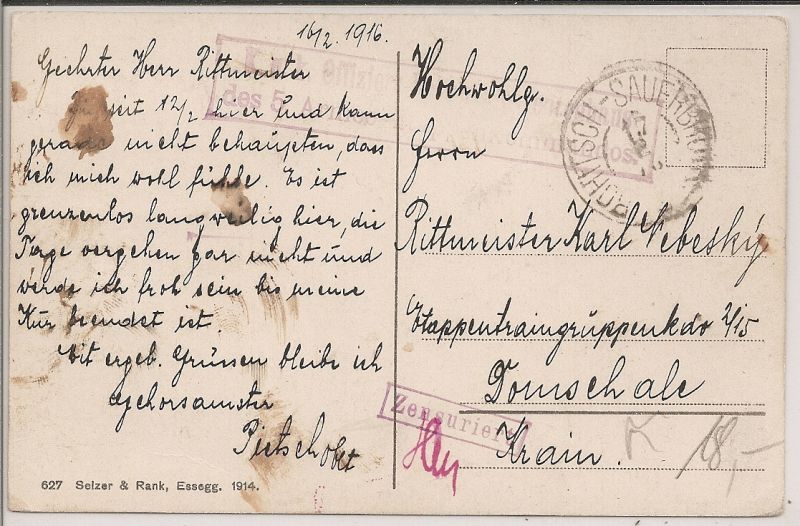 16/2. 1916.
Geehrter Herr Rittmeister
Bin seit 12/2 hier und kann
gerade nicht behaupten, dass
ich mich woll fühle. Es ist
grenzenlos langweilig hier, die
Tage vergehen gar nicht und
werde ich froh sein bis meine
Kur beendet ist.
Mit ergeb. Grüssen bleibe ich
gehorsamster
Pietsch oblt
627 Selzer & Rank, Essegg. 1914.
Hochwohlg.
Herrn
Rittmeister Karl Nebeský
Etappentraingruppenkdo 2/15
Domschale
Krain.
K 18,-
Zensuriert
ROHITSCH-SAUERBRUNN
des 5.